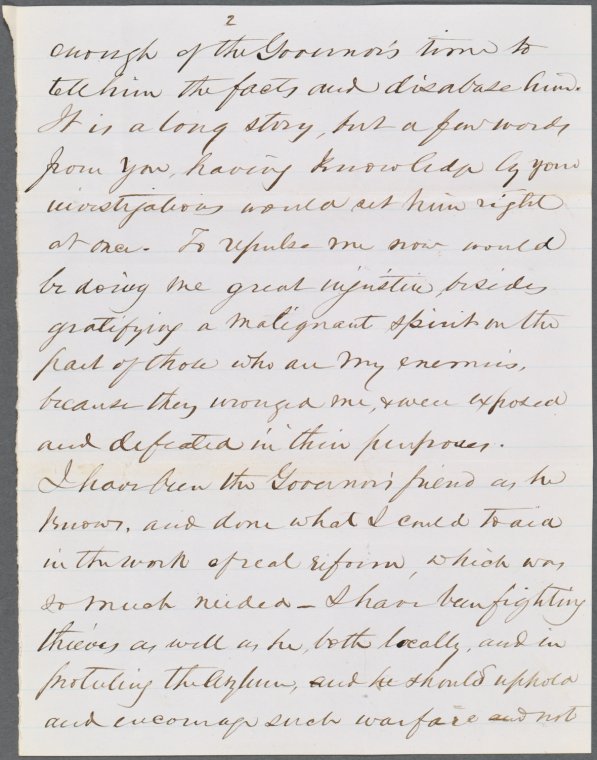 2
enough of the Governor's time to
tell him the facts and disabase him.
It is a long story, but a few words
from you, having knowledge by your
investigations would set him right
at once. To repulse me now would
be doing me great injustice, besides
gratifying a malignant spirit on the
part of those who are my enemies,
because they wronged me, & were exposed
and defeated in their purposes.
I have been the Governor's friend as he
knows, and done what I could to aid
in the work of real reform, which was
so much needed — I have been fighting
thieves as well as he, both locally, and in
protecting the Asylum, and he should uphold
and encourage such warfare and not